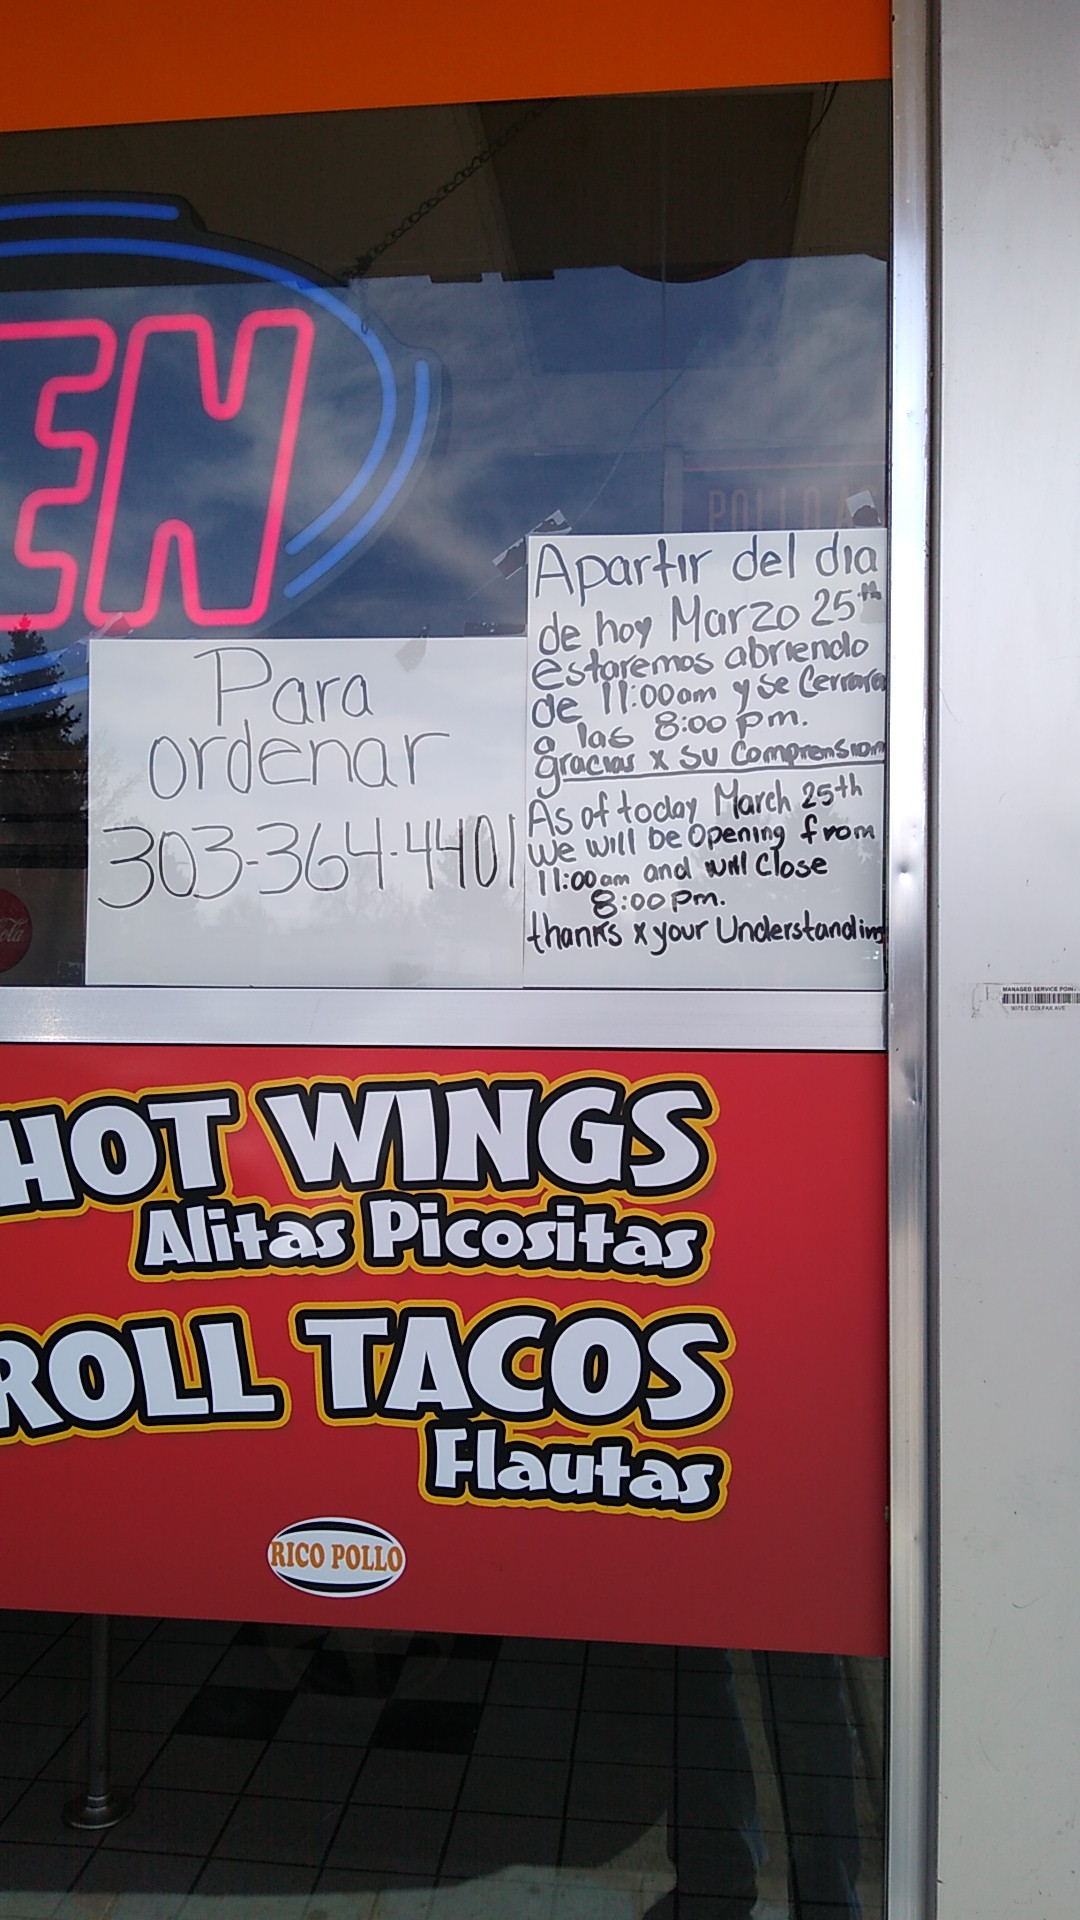 EN
POLLO
Apartir del dia
de hoy Marzo 25th
estaremos abriendo
de 11:00am y se Cerrara
a las 8:00 pm.
gracias x su Comprension
As of today March 25th
We will be Opening from
11:00am and will Close
8:00 pm.
thanks x your Understanding
Para
ordenar
303-364-4401
MANAGED SERVICE POIN
9075 E COLFAX AVE
HOT WINGS
Alitas Picositas
ROLL TACOS
Flautas
RICO POLLO